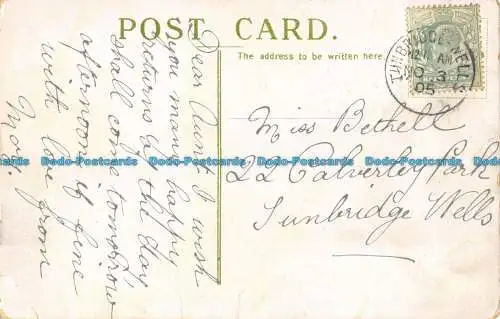 POST CARD.
The address to be written here.
TUNBRIDGE WELLS
12 AM
NO 3
05
Dear Aunt I wish
you many happy
returns of the day
shall come tomorrow
afternoon if fine
with love from
Miss Bethell
22 Calverley Park
Tunbridge Wells
Dodo-Postcards Dodo-Postcards Dodo-Postcards Dodo-Postcards Dodo-Postcards